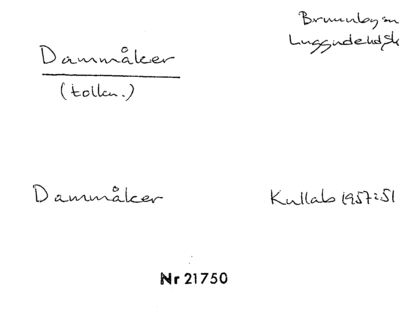 Brunnby sn
Luggude hd, Sk
Dammåker
(tolkn.)
Dammåker
Kullab 1957:51
Nr 21750